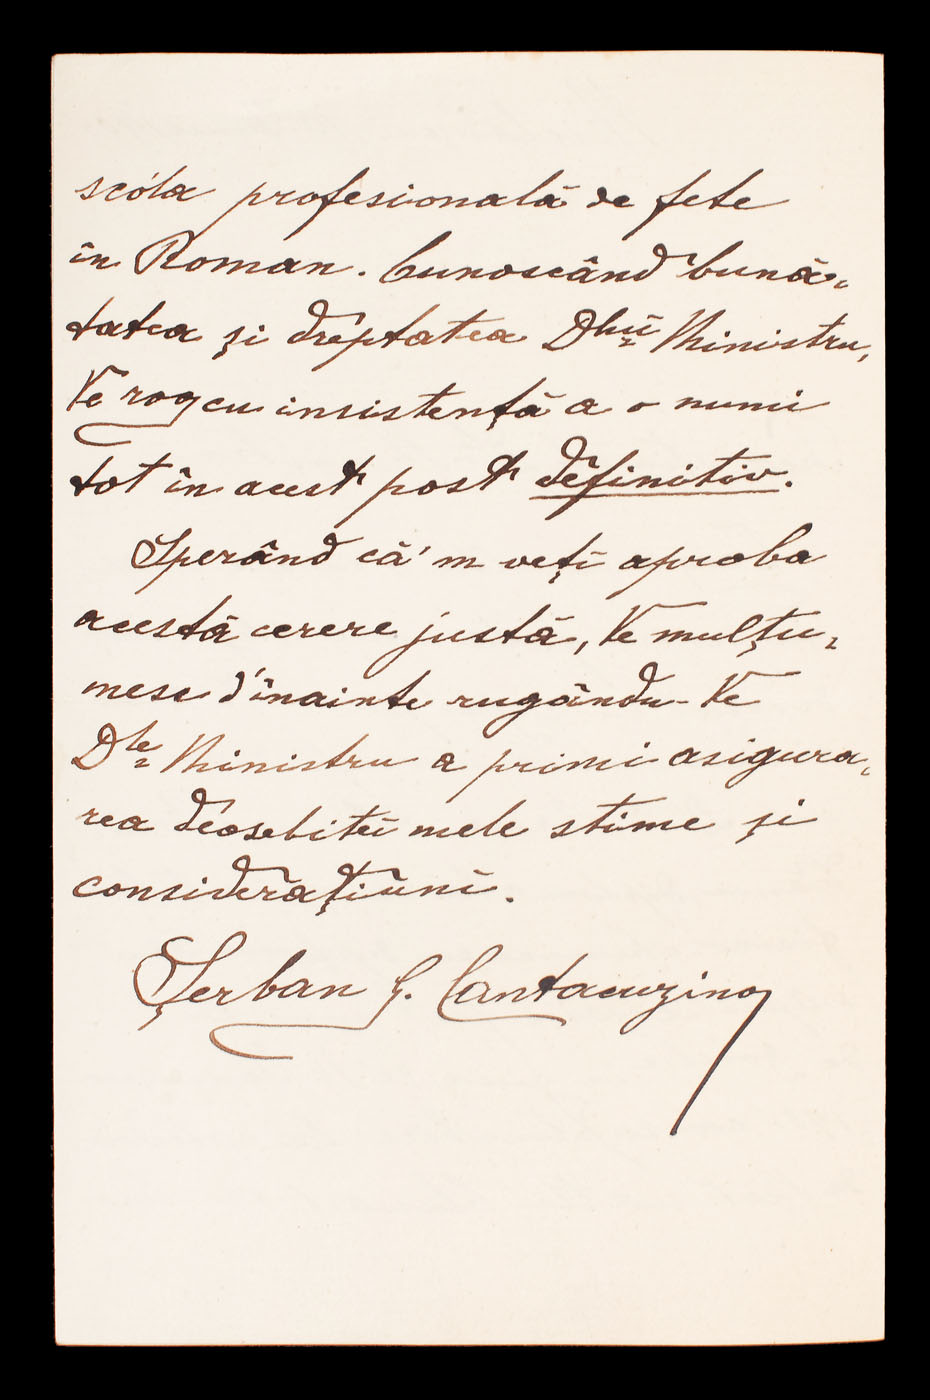 scóla profesională de fete
în Roman. Cunoscând bună-
tatea și dreptatea Dlui Ministru,
Ve rog cu insistență a o numi
tot în acest post definitiv.
Sperând că'm veți aproba
acestă cerere justă, Ve mulțu-
mesc d'înainte rugându-Ve
Dle Ministru a primi asigura-
rea deosebitei mele stime și
considerațiuni.
Șerban G. Cantacuzino